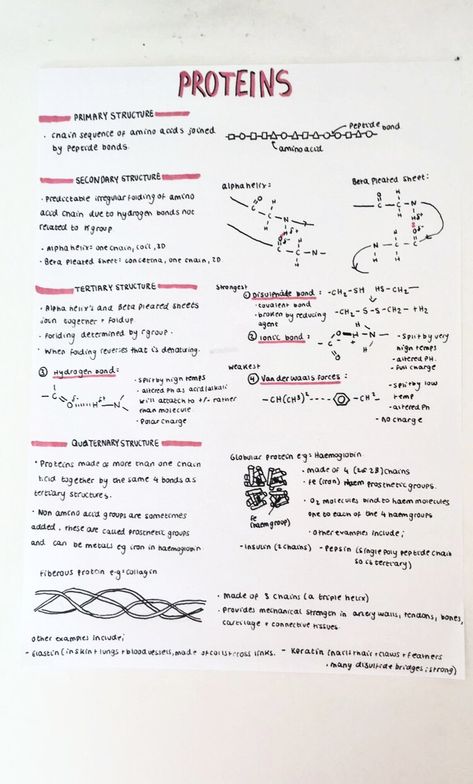 PROTEINS
PRIMARY STRUCTURE
· Chain sequence of amino acids joined
by peptide bonds.
peptide bond
amino acid
SECONDARY STRUCTURE
· Predictable irregular folding of amino
acid chain due to hydrogen bonds not
related to R group.
· Alpha helix: one chain, coil, 3D
· Beta Pleated sheet: concetina, one chain, 2D
alpha helix:
Beta pleated sheet:
TERTIARY STRUCTURE
· Alpha helix's and Beta pleated sheets
join together + fold up.
· Folding determined by r group.
· When folding reverses that is denaturing.
③ Hydrogen bond:
· split by high temps
· altered Ph as acid/alkali
will attatch to +/- rather
than molecule
· Polar charge
Strongest
① Disulphide bond: -CH₂-SH HS-CH₂-
· covalent bond
· broken by reducing
agent
-CH₂-S-S-CH₂- + H₂
② Ionic bond:
- split by very
high temps
- altered PH.
- full charge
weakest
④ Van der waals forces:
-CH(CH₃)² CH²-
- split by low
temp
- altered Ph
- no charge
QUATERNARY STRUCTURE
· Proteins made of more than one chain
held together by the same 4 bonds as
tertiary structures.
· Non amino acid groups are sometimes
added, these are called prosthetic groups
and can be metals eg iron in haemoglobin
Globular protein e.g = Haemoglobin
· made of 4 chains
· Fe (iron) Haem prosthetic groups.
· O₂ molecules bind to haem molecules
one to each of the 4 haem groups
Fe
(haem group)
· Other examples include;
- Insulin (2 chains) - Pepsin (single poly peptide chain
so is tertiary)
Fiberous protein e.g = collagin
· made of 3 chains (a triple helix)
· Provides mechanical strength in artery walls, tendons, bones,
cartilage + connective tissues.
Other examples include;
- Elastin (in skin + lungs + blood vessels, made of coils + cross links. - Keratin (nails + hair + claws + feathers
· many disulfide bridges : strong)